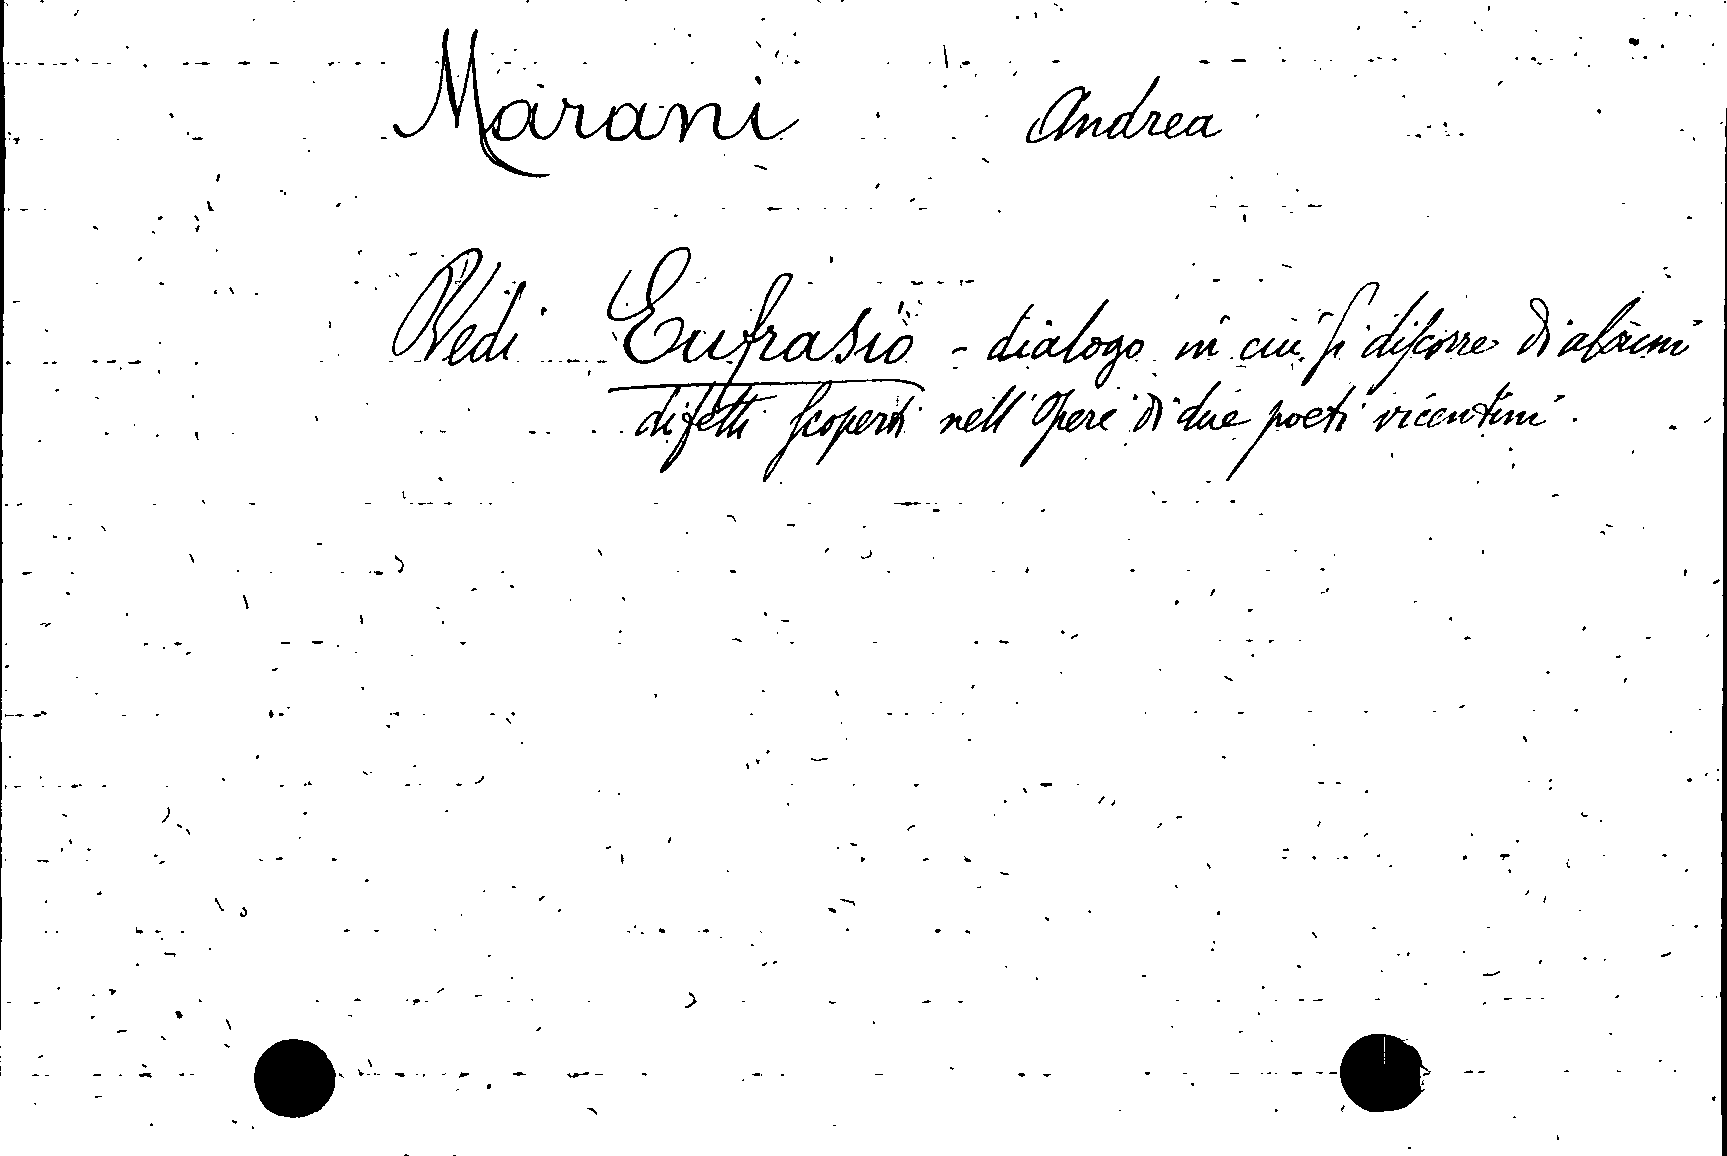 Marani Andrea
Vedi Eufrasio - dialogo in cui si discorre di alcuni
difetti scoperti nell'Opere di due poeti vicentini.